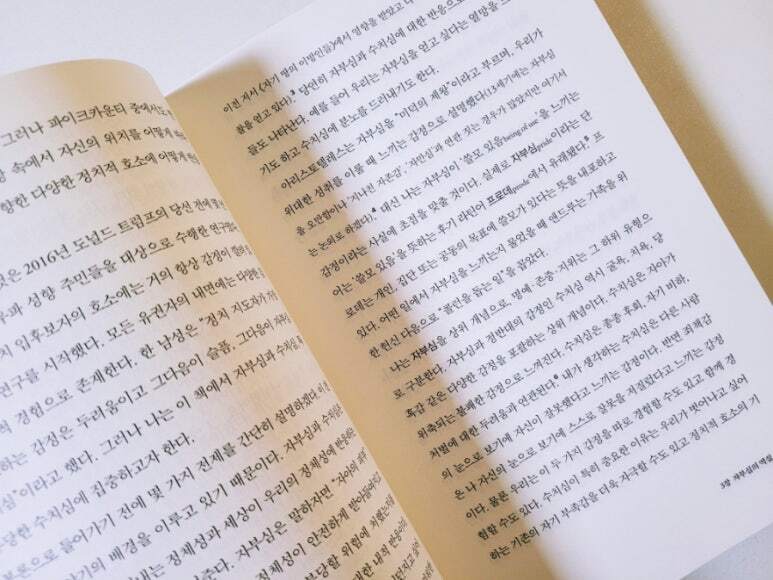 그러나 파이크카운티 중에서도
속에서 자신의 위치를 어떻게
향한 다양한 정치적 호소에 어떻게
것은 2016년 도널드 트럼프의 당선 전에
성향 주민들을 대상으로 수행한
입후보자의 호소에는 거의 항상 감정이
연구를 시작했다. 모든 유권자의 내면에는 다양한
경험으로 존재한다. 한 남성은 "정치 지도자가
하는 감정은 두려움이고 그다음이 슬픔, 그다음이 자부심
심"이라고 했다. 그러나 나는 이 책에서 자부심과 수치심
당한 수치심에 집중하고자 한다.
론으로 들어가기 전에 몇 가지 전제를 간단히 설명하겠다.
의 배경을 이루고 있기 때문이다. 자부심과 수치심은
내는 정체성과 세상이 우리의 정체성에 반응
준다. 자부심은 말하자면 "자아의
정체성이 안전하게 받아들여
부당할 위험에 처했는
이전 저서 《자기 땅의 이방인들》에서 영향을 받았고
찰을 얻고 있다. 당연히 자부심과 수치심에 대한 반응으로
들도 나타난다. 예를 들어 우리는 자부심을 얻고 싶다는 열망을
기도 하고 수치심에 분노를 드러내기도 한다.
아리스토텔레스는 자부심을 "미덕의 제왕"이라고 부르며, 우리가
위대한 성취를 이룰 때 느끼는 감정으로 설명했다(13세기에는 자부심
을 오만함이나 '지나친 자존감', '자만심'과 연관 짓는 경우가 많았지만 여기서
는 논외로 하겠다). 대신 나는 자부심이 '쓸모 있음being of use'을 느끼는
감정이라는 사실에 초점을 맞출 것이다. 실제로 자부심pride이라는 단
어는 '쓸모 있음'을 뜻하는 후기 라틴어 프로데prode에서 유래했다. 프
로데는 개인, 집단 또는 공동의 목표에 쓸모가 있다는 뜻을 내포하고
있다. 어떤 일에서 자부심을 느끼는지 물었을 때 앤드루는 가족을 위
한 헌신 다음으로 "콜린을 돕는 일"을 꼽았다.
나는 자부심을 상위 개념으로, 명예·존중·지위는 그 하위 유형으
로 구분한다. 자부심과 정반대의 감정인 수치심 역시 굴욕, 치욕, 당
혹감 같은 다양한 감정을 포괄하는 상위 개념이다. 수치심은 자아가
위축되는 불쾌한 감정으로 느껴진다. 수치심은 종종 후회, 자기 비하,
처벌에 대한 두려움과 연관된다. 내가 생각하는 수치심은 다른 사람
의 눈으로 보기에 자신이 잘못했다고 느끼는 감정이다. 반면 죄책감
은 나 자신의 눈으로 보기에 스스로 잘못을 저질렀다고 느끼는 감정
이다. 물론 우리는 이 두 가지 감정을 따로 경험할 수도 있고 함께 경
험할 수도 있다. 수치심이 특히 중요한 이유는 우리가 벗어나고 싶어
하는 기존의 자기 부족감을 더욱 자극할 수도 있고 정치적 호소의 기
3장 자부심의 역설